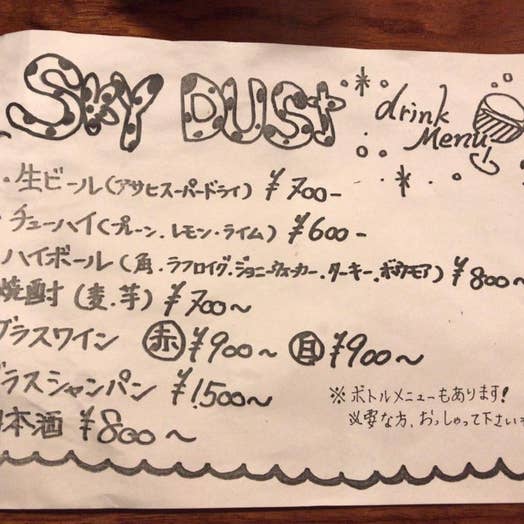 SKY DUST drink Menu
・生ビール(アサヒスーパードライ) ¥700-
・チューハイ(プレーン.レモン・ライム) ¥600-
ハイボール(角.ラフロイグ.ジョニーウォーカー.ターキー.ボウモア) ¥800〜
焼酎(麦.芋) ¥700〜
グラスワイン 赤 ¥900〜 白 ¥900〜
グラスシャンパン ¥1,500〜
日本酒 ¥800〜
※ボトルメニューもあります!
必要な方、おっしゃって下さいませ